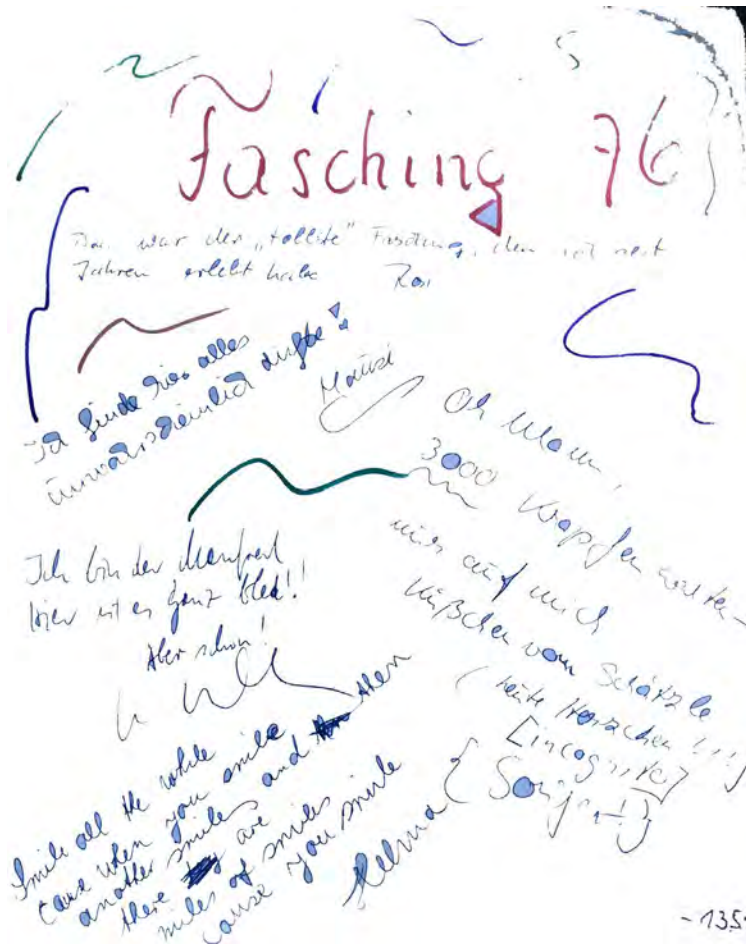 Fasching 76
Das war der „tollste" Fasching, den ich seit
Jahren erlebt habe Rosi
Ich finde hier alles
unwahrscheinlich dufte!
Mausi
Oh Mann,
3000 Krapfen warten
nur auf mich
Küßchen vom Schätzle
(heute Herzchen !!!)
[incognito]
Ich bin der Manfred
hier ist es ganz bled!!
Aber schön!
Smile all the while
cause when you smile
another smiles and then
there are
miles of smiles
cause you smile
- 135 -